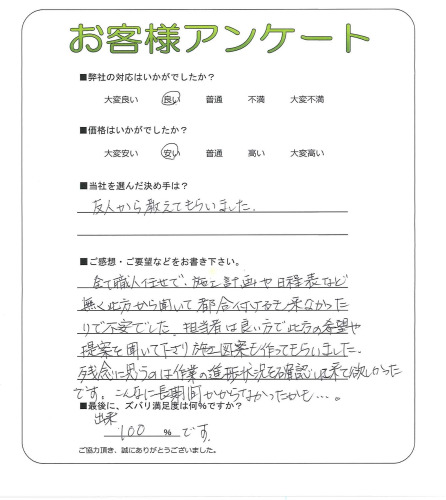 お客様アンケート
■弊社の対応はいかがでしたか?
大変良い 良い 普通 不満 大変不満
■価格はいかがでしたか?
大変安い 安い 普通 高い 大変高い
■当社を選んだ決め手は?
友人から教えてもらいました.
■ご感想・ご要望などをお書き下さい。
全て職人任せで、施工計画や日程表など
無く此方から聞いて都合付けるも来なかった
りで不安でした. 担当者は良い方で此方の希望や
提案を聞いて下さり施工図案も作ってもらいました.
残念に思うのは作業の進捗状況を確認しに来て欲しかった
です. こんなに長期間かからなかったかも…。
■最後に、ズバリ満足度は何%ですか?
出来
100 % です.
ご協力頂き、誠にありがとうございました。